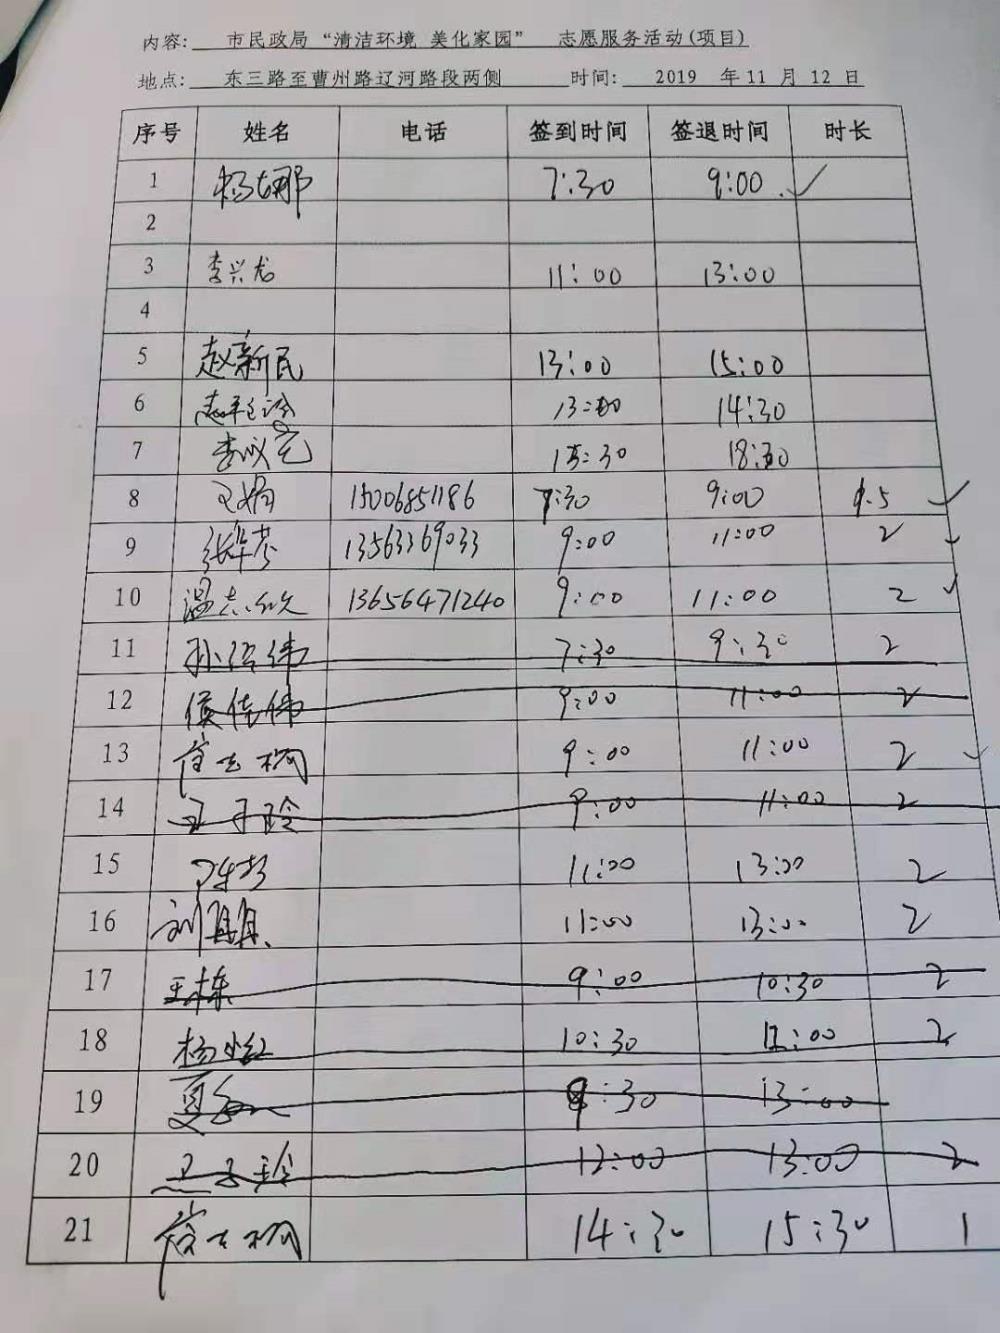 内容: 市民政局“清洁环境 美化家园” 志愿服务活动(项目)
地点: 东三路至曹州路辽河路段两侧 时间: 2019 年 11 月 12 日
序号 姓名 电话 签到时间 签退时间 时长
1 杨娜 7:30 9:00 ✓
2
3 李兴龙 11:00 13:00
4
5 赵新民 13:00 15:00
6 13:00 14:30
7 15:30 18:30
8 王娟 15006851186 7:30 9:00 1.5 ✓
9 13563369033 9:00 11:00 2 ✓
10 温志欣 13656471240 9:00 11:00 2 ✓
11 孙伟 7:30 9:30 2
12 侯佳伟 9:00 11:00 2
13 9:00 11:00 2 ✓
14 王子玲 9:00 11:00 2
15 11:00 13:00 2
16 刘 11:00 13:00 2
17 王栋 9:00 10:30 2
18 杨 10:30 12:00 2
19 夏 9:30 13:00
20 王子玲 12:00 13:00 2
21 14:30 15:30 1